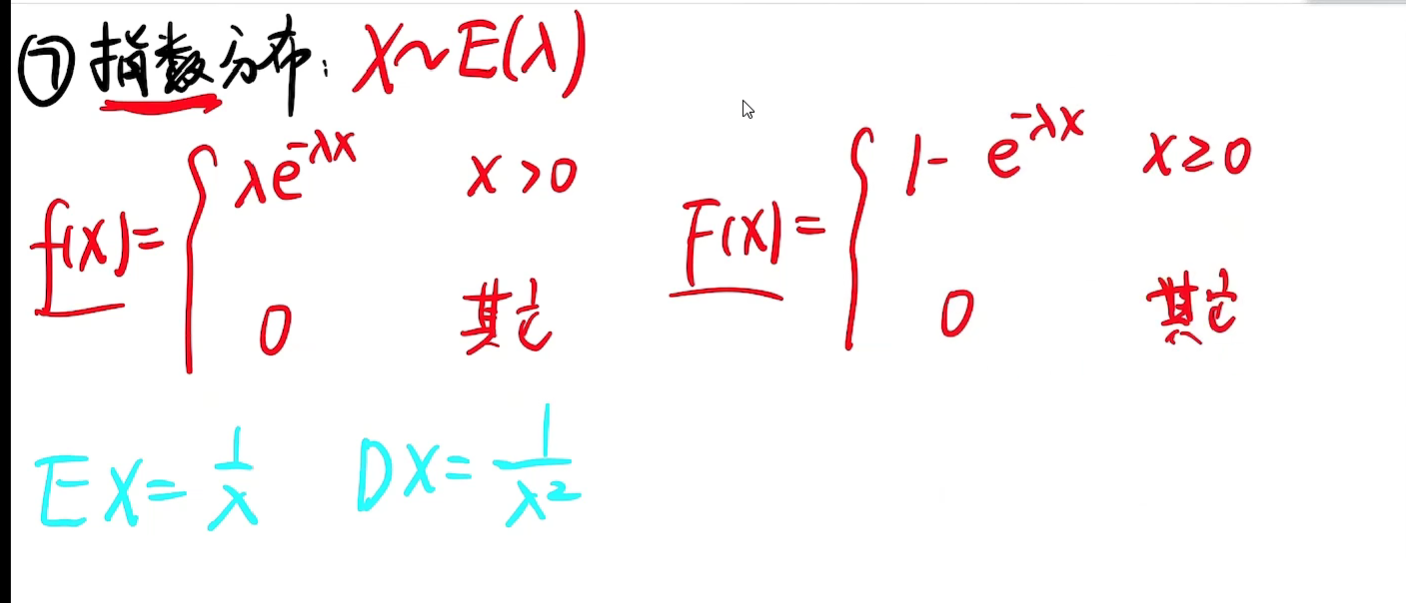 ⑦ 指数分布: X~E(λ)
f(x)= { λe^{-λx} x>0
0 其它
F(x)= { 1-e^{-λx} x≥0
0 其它
EX=1/λ DX=1/λ²